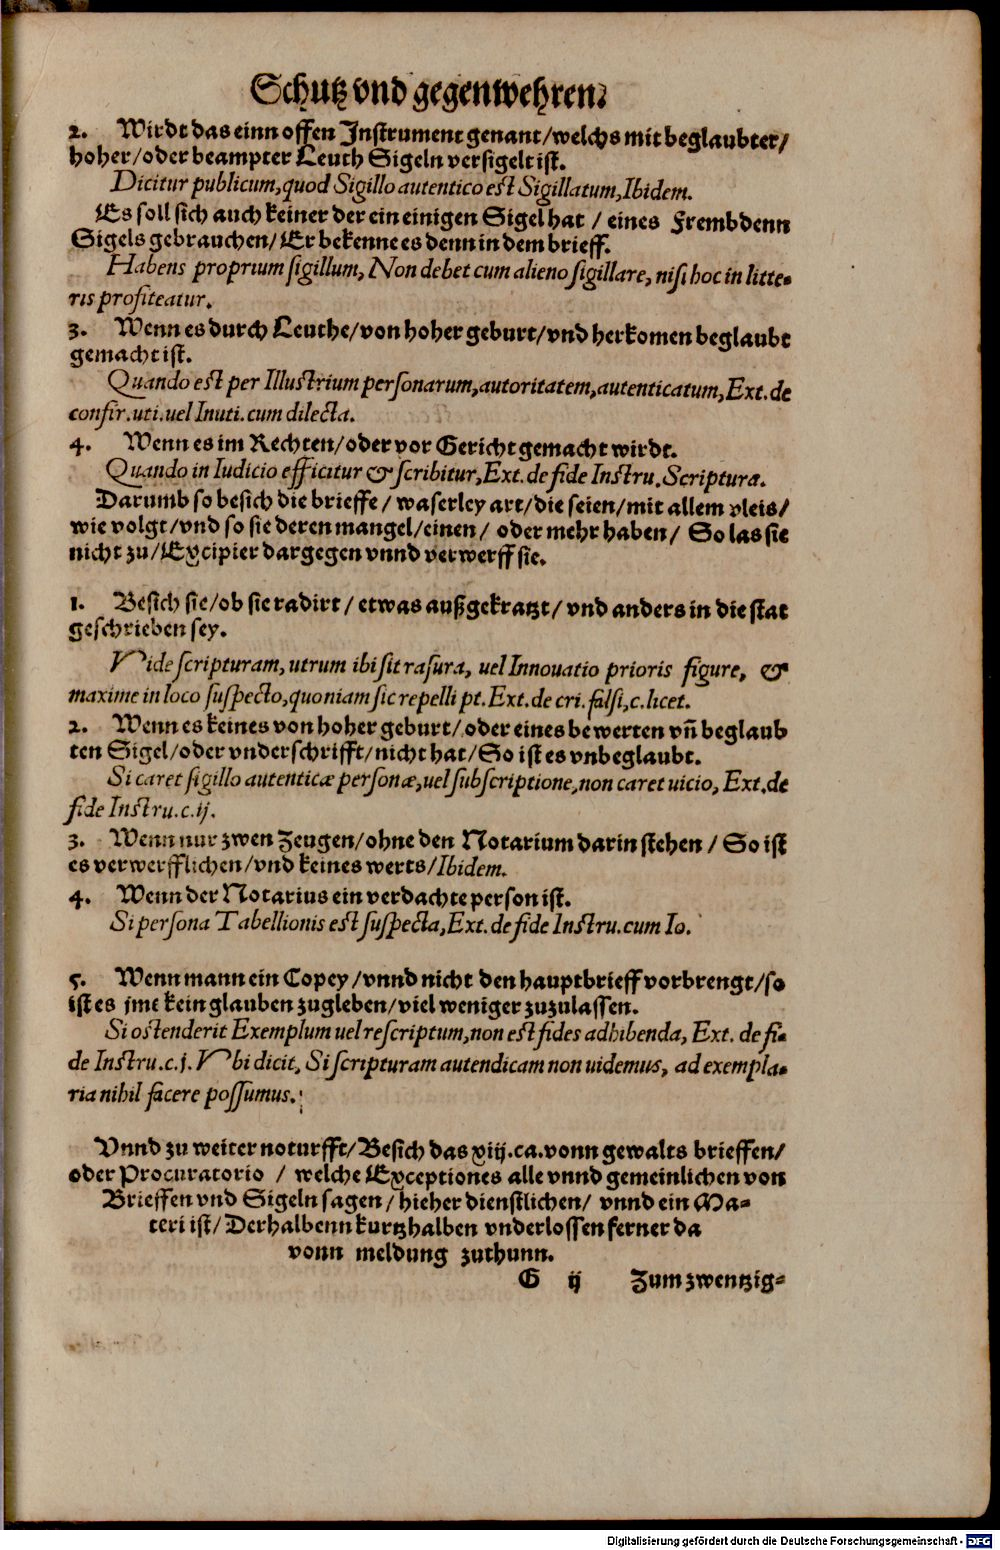 Schutz vnd gegenwehren.
2. Wirdt das einn offen Instrument genant/welchs mit beglaubter/
hoher/oder beampter Leuth Sigeln versigelt ist.
Dicitur publicum, quod Sigillo autentico est Sigillatum, Ibidem.
Es soll sich auch keiner der ein einigen Sigel hat / eines Frembdenn
Sigels gebrauchen/ Er bekenne es denn in dem brieff.
Habens proprium sigillum, Non debet cum alieno sigillare, nisi hoc in litte-
ris profiteatur.
3. Wenn es durch Leuthe/von hoher geburt/vnd herkomen beglaubt
gemacht ist.
Quando est per Illustrium personarum, autoritatem, autenticatum, Ext. de
confir. uti. uel Inuti. cum dilecta.
4. Wenn es im Rechten/oder vor Gericht gemacht wirdt.
Quando in Iudicio efficitur & scribitur, Ext. de fide Instru. Scriptura.
Darumb so besich die brieffe / waserley art/die seien/mit allem vleis/
wie volgt/vnd so sie deren mangel/einen/ oder mehr haben/ So las sie
nicht zu/Excipier dargegen vnnd verwerff sie.
1. Besich sie/ob sie radirt / etwas außgekratzt/ vnd anders in die stat
geschrieben sey.
Vide scripturam, utrum ibi sit rasura, uel Innouatio prioris figure, &
maxime in loco suspecto, quoniam sic repelli pt. Ext. de cri. falsi, c. licet.
2. Wenn es keines von hoher geburt/ oder eines bewerten vn̄ beglaub
ten Sigel/oder vnderschrifft/nicht hat/So ist es vnbeglaubt.
Si caret sigillo autenticæ personæ, uel subscriptione, non caret uicio, Ext. de
fide Instru. c. ij.
3. Wenn nur zwen Zeugen/ohne den Notarium darin stehen / So ist
es verwerfflichen/vnd keines werts/Ibidem.
4. Wenn der Notarius ein verdachte person ist.
Si persona Tabellionis est suspecta, Ext. de fide Instru. cum Io.
5. Wenn mann ein Copey/vnnd nicht den hauptbrieff vorbrengt/so
ist es jme kein glauben zugleben/viel weniger zuzulassen.
Si ostenderit Exemplum uel rescriptum, non est fides adhibenda, Ext. de fi-
de Instru. c. j. Vbi dicit, Si scripturam autendicam non uidemus, ad exempla-
ria nihil facere possumus.
Vnnd zu weiter noturfft/Besich das xiij. ca. vonn gewalts brieffen/
oder Procuratorio / welche Exceptiones alle vnnd gemeinlichen von
Brieffen vnd Sigeln sagen / hieher dienstlichen/ vnnd ein Ma-
teri ist/ Derhalbenn kurtzhalben vnderlossen ferner da
vonn meldung zuthunn.
G ij Zum zwentzig-
Digitalisierung gefördert durch die Deutsche Forschungsgemeinschaft - DFG